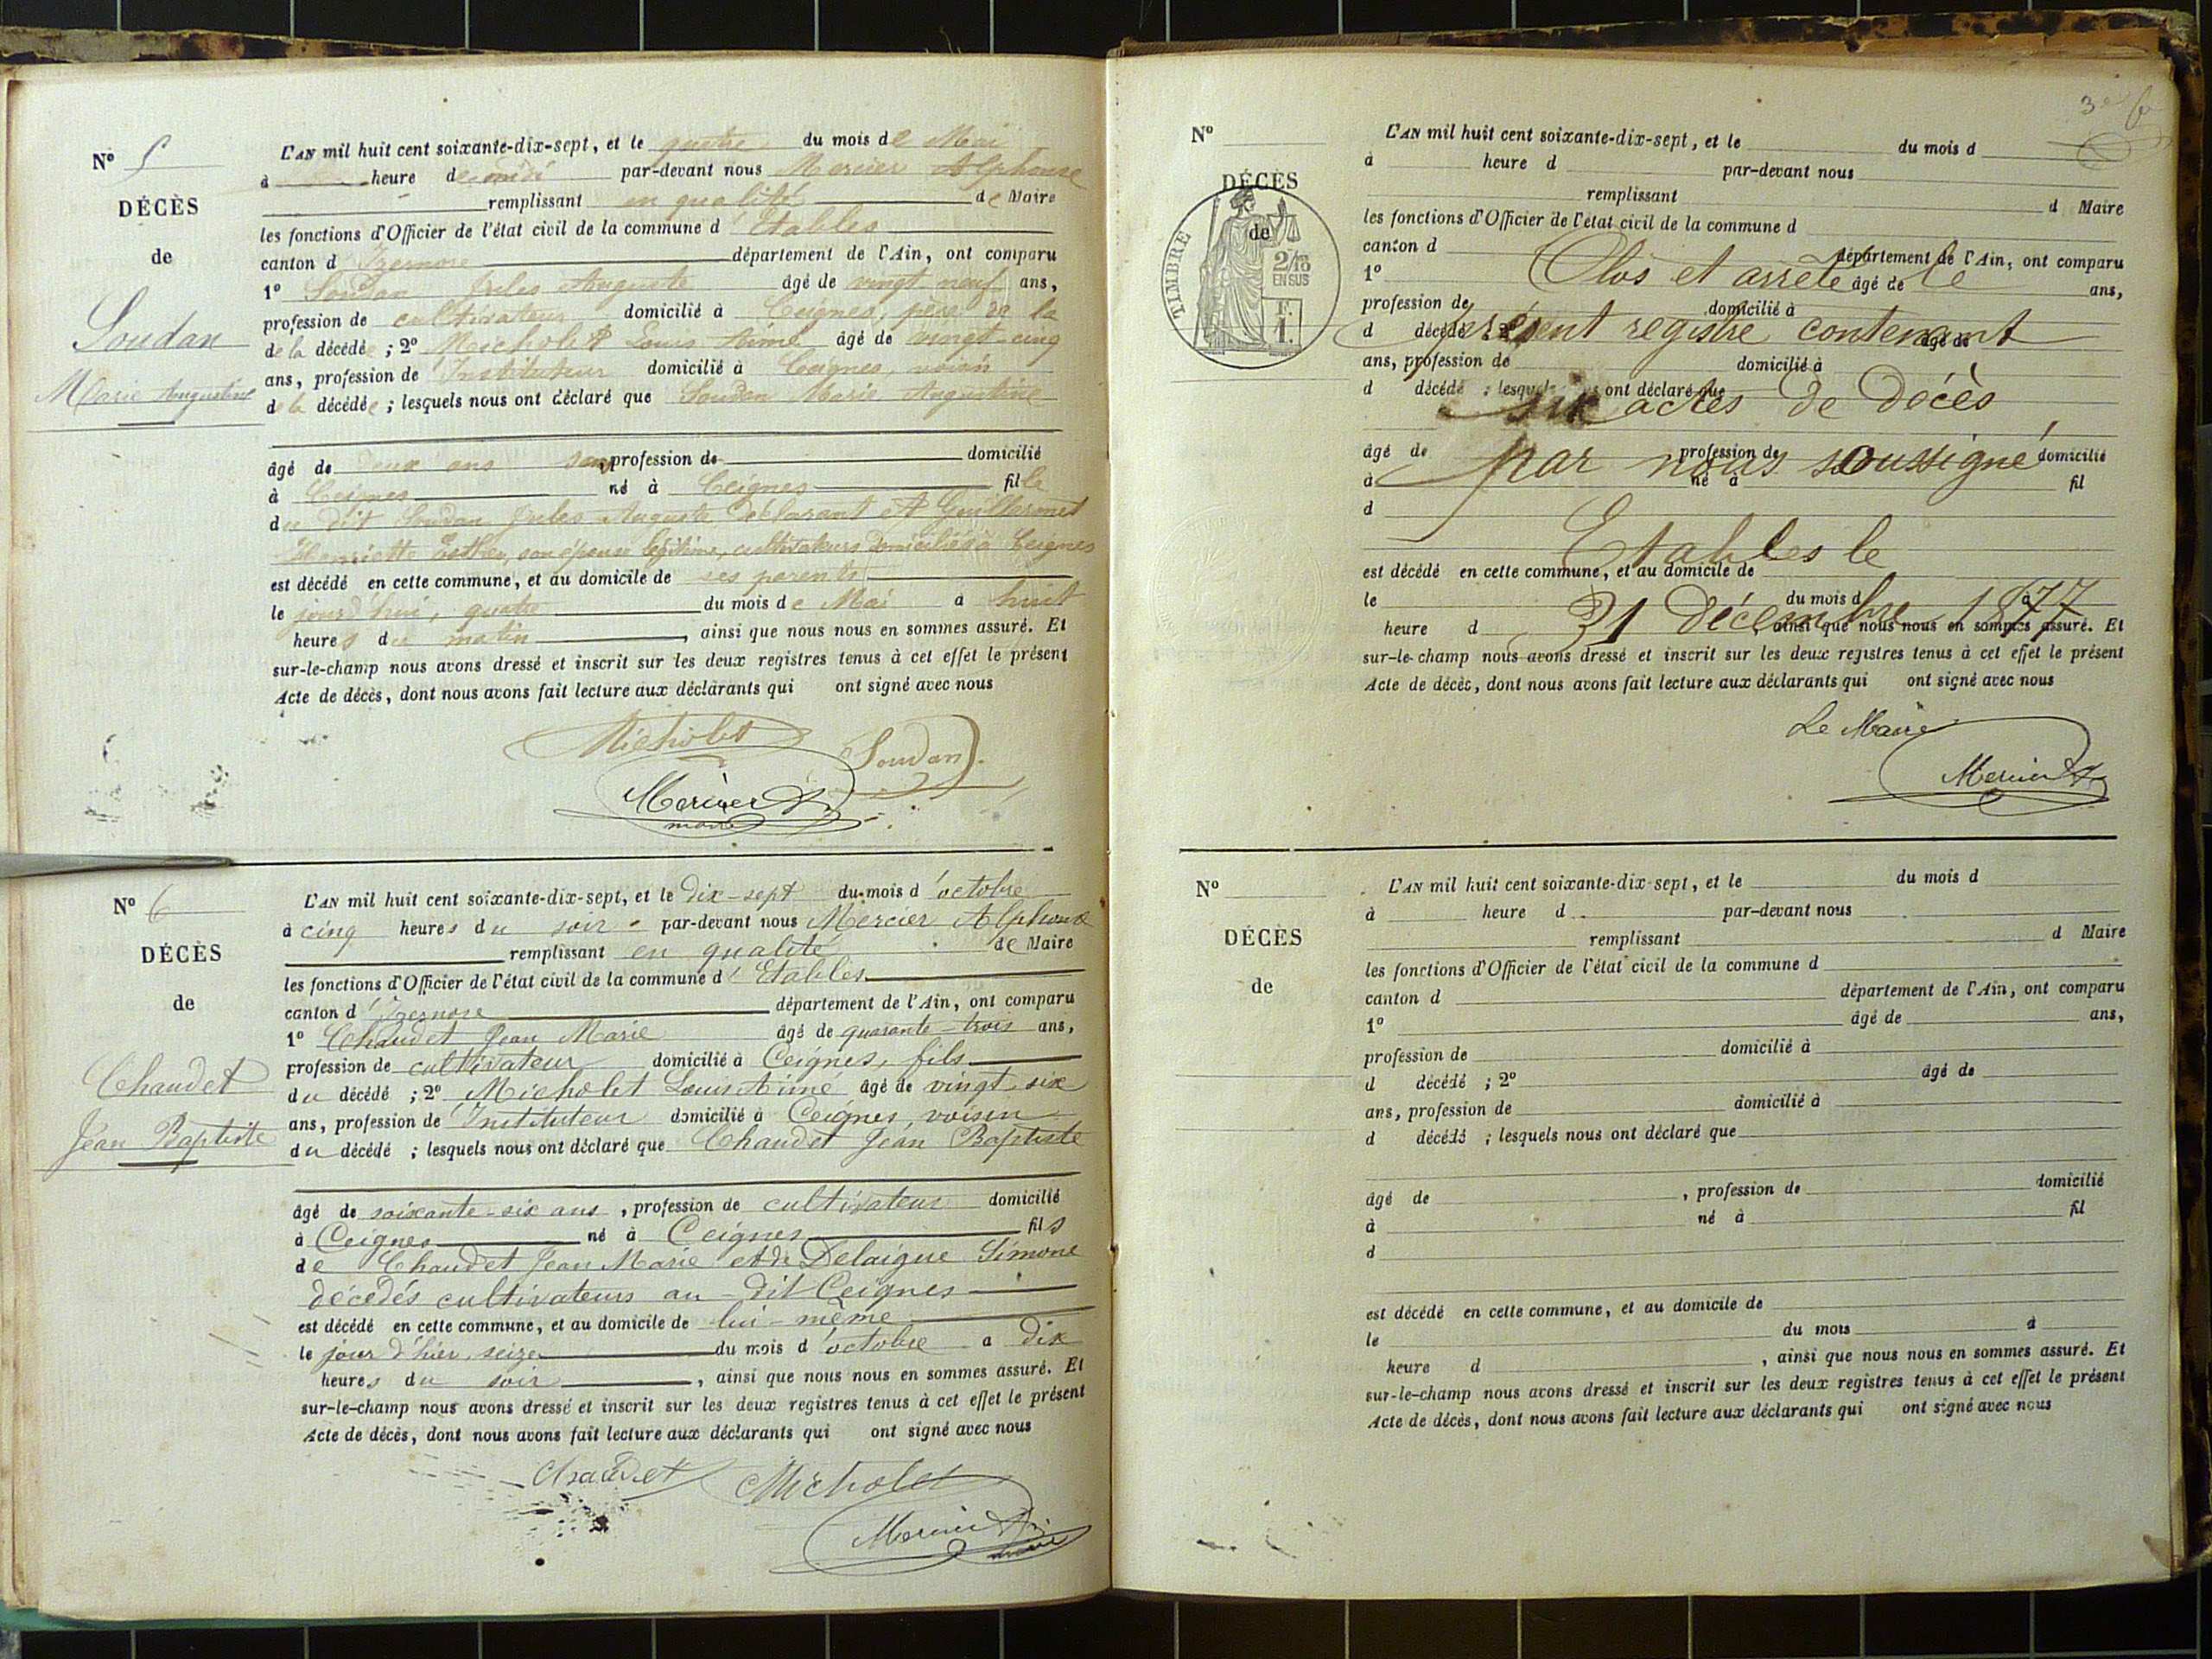 N° 5
DÉCÈS
de
Soudan
Marie Augustine
L'AN mil huit cent soixante-dix-sept, et le quatre du mois de Mai
à heure de midi par-devant nous Mercier Alphonse
remplissant en qualité de Maire
les fonctions d'Officier de l'état civil de la commune d'Etables
canton d'Izernore département de l'Ain, ont comparu
1° Soudan Jules Auguste âgé de vingt neuf ans,
profession de cultivateur domicilié à Ceignes, père de la
de la décédée ; 2° Micholet Louis Aimé âgé de vingt-cinq
ans, profession de Instituteur domicilié à Ceignes, voisin
de la décédée ; lesquels nous ont déclaré que Soudan Marie Augustine
âgé de deux ans sans profession de domicilié
à Ceignes né à Ceignes fille
du dit Soudan Jules Auguste déclarant et Guillermet
Henriette Esther, son épouse légitime, cultivateurs domiciliés à Ceignes
est décédé en cette commune, et au domicile de ses parents
le jourd'hui, quatre du mois de Mai à huit
heures du matin , ainsi que nous nous en sommes assuré. Et
sur-le-champ nous avons dressé et inscrit sur les deux registres tenus à cet effet le présent
Acte de décès, dont nous avons fait lecture aux déclarants qui ont signé avec nous
Micholet Soudan
Mercier A
maire
N° 6
DÉCÈS
de
Chaudet
Jean Baptiste
L'AN mil huit cent soixante-dix-sept, et le dix-sept du mois d'octobre
à cinq heures du soir par-devant nous Mercier Alphonse
remplissant en qualité de Maire
les fonctions d'Officier de l'état civil de la commune d'Etables
canton d'Izernore département de l'Ain, ont comparu
1° Chaudet Jean Marie âgé de quarante-trois ans,
profession de cultivateur domicilié à Ceignes, fils
du décédé ; 2° Micholet Louis Aimé âgé de vingt-six
ans, profession de Instituteur domicilié à Ceignes, voisin
du décédé ; lesquels nous ont déclaré que Chaudet Jean Baptiste
âgé de soixante-six ans , profession de cultivateur domicilié
à Ceignes né à Ceignes fils
de Chaudet Jean Marie et de Delaigue Simone
décédés cultivateurs au-dit Ceignes
est décédé en cette commune, et au domicile de lui-même
le jour d'hier, seize du mois d'octobre à dix
heures du soir , ainsi que nous nous en sommes assuré. Et
sur-le-champ nous avons dressé et inscrit sur les deux registres tenus à cet effet le présent
Acte de décès, dont nous avons fait lecture aux déclarants qui ont signé avec nous
Chaudet Micholet
Mercier A
maire
N°
DÉCÈS
de
TIMBRE
2/10
EN SUS
F.
1.
L'AN mil huit cent soixante-dix-sept, et le du mois d
à heure d par-devant nous
remplissant d Maire
les fonctions d'Officier de l'état civil de la commune d
canton d département de l'Ain, ont comparu
1° âgé de ans,
Clos et arrêté le
profession de domicilié à
d décédé ; 2° âgé de
présent registre contenant
ans, profession de domicilié à
d décédé ; lesquels nous ont déclaré que
six actes de décès
âgé de profession de domicilié
par nous soussigné
à né à fil
d
Etables le
est décédé en cette commune, et au domicile de
le du mois d à
31 décembre 1877
heure d , ainsi que nous nous en sommes assuré. Et
sur-le-champ nous avons dressé et inscrit sur les deux registres tenus à cet effet le présent
Acte de décès, dont nous avons fait lecture aux déclarants qui ont signé avec nous
Le Maire
Mercier A
N°
DÉCÈS
de
L'AN mil huit cent soixante-dix-sept, et le du mois d
à heure d par-devant nous
remplissant d Maire
les fonctions d'Officier de l'état civil de la commune d
canton d département de l'Ain, ont comparu
1° âgé de ans,
profession de domicilié à
d décédé ; 2° âgé de
ans, profession de domicilié à
d décédé ; lesquels nous ont déclaré que
âgé de , profession de domicilié
à né à fil
d
est décédé en cette commune, et au domicile de
le du mois à
heure d , ainsi que nous nous en sommes assuré. Et
sur-le-champ nous avons dressé et inscrit sur les deux registres tenus à cet effet le présent
Acte de décès, dont nous avons fait lecture aux déclarants qui ont signé avec nous